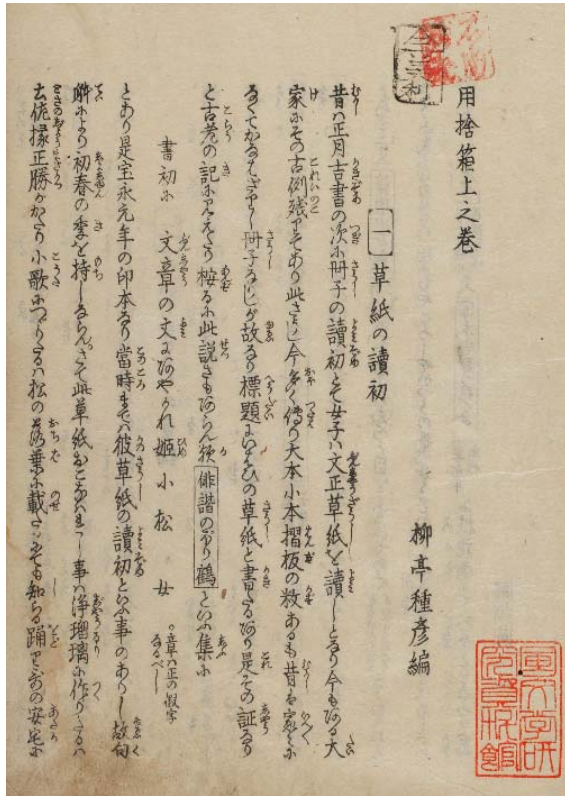 用捨箱上之巻
柳亭種彦編
一 草紙の讀初
昔ハ正月吉書の次に冊子の讀初とて女子ハ文正草紙を讀しとなり今もある大
家にその古例残りてあり此さうし今多く傳り大本小本摺板の数あるも昔ハ家々に
なくてかなはざりし冊子なりしが故なり標題にいはひの草紙と書たるあり是その証なり
と古老の記に見えたり按るに此説さもあらん歟俳諧のぼり鶴といふ集に
書初に文章の文にあやかれ姫小松 女 の章ハ正の假字なるべし
とあり是宝永元年の印本なり當時までハ彼草紙の讀初といふ事のありし故句
解により初春の季を持しならんさて此草紙おこなはれし事ハ浄瑠璃に作りたるハ
土佐掾正勝がかたり小歌につゞりたるハ松の落葉に載たるにても知らる踊の安宅に